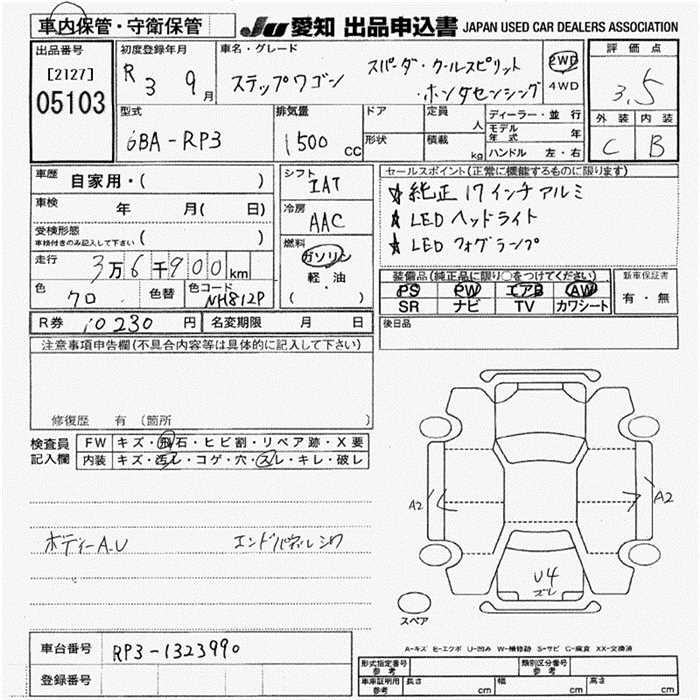 車内保管・守衛保管
JU 愛知 出品申込書 JAPAN USED CAR DEALERS ASSOCIATION
出品番号
[2127]
05103
初度登録年月
R 3 9 月
車名・グレード
ステップワゴン スパーダ・クールスピリット
・ホンダセンシング
2WD
4WD
評価点
3.5
外装 内装
C B
型式
6BA-RP3
排気量
1500 cc
ドア
形状
定員 人
積載 kg
ディーラー・並行
モデル年式 年
ハンドル 左・右
車歴 自家用・( )
車検 年 月( 日)
受検形態
車検付きのみ記入して下さい ( )
走行 3万6千900km
色 クロ 色替 色コード NH812P
シフト
IAT
冷房
AAC
燃料
ガソリン
軽・油
( )
セールスポイント(正常に機能するものに限ります)
★純正17インチアルミ
★LEDヘッドライト
★LEDフォグランプ
装備品(純正品に限り○をつけてください)
PS PW エアB AW
SR ナビ TV カワシート
新車保証書
有・無
後日品
R券 10230 円 名変期限 月 日
注意事項申告欄(不具合内容等は具体的に記入して下さい)
修復歴 有(箇所 )
検査員
記入欄
FW キズ・飛石・ヒビ割・リペア跡・X要
内装 キズ・汚レ・コゲ・穴・スレ・キレ・破レ
ボディーA.U エンドパネルシワ
A2
A2
U4
ズレ
スペア
A-キズ E-エクボ U-凹み W-補修跡 S-サビ C-腐食 XX-交換済
車台番号 RP3-1323990
登録番号
形式指定番号
参考
類別区分番号
参考
車庫証明用
参考
長さ cm 幅 cm 高さ cm